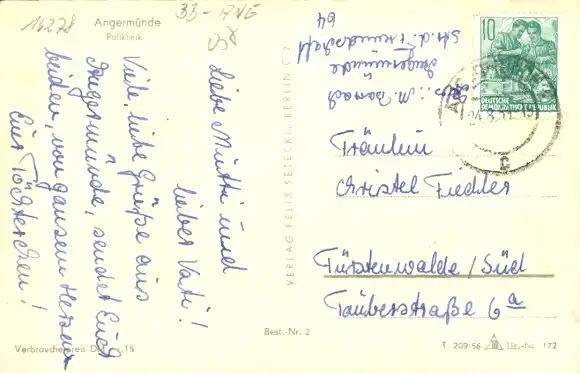 14278
BB-ANG
Angermünde
Poliklinik
Liebe Mutti und
lieber Vati!
Viele, liebe Grüße aus
Angermünde, sendet Euch
beiden, von ganzem Herzen
Eure Töchterchen!
Verbraucherpreis
VERLAG FELIX SETECKI, BERLIN C 2
Best.-Nr. 2
Angermünde
Str. d. Freundschaft
64
10
DEUTSCHE
DEMOKRATISCHE REPUBLIK
Fräulein
Christel Fiedler
Fürstenwalde/Süd
Tauberstraße 6a
T 209/56
Liz.-Nr. 172